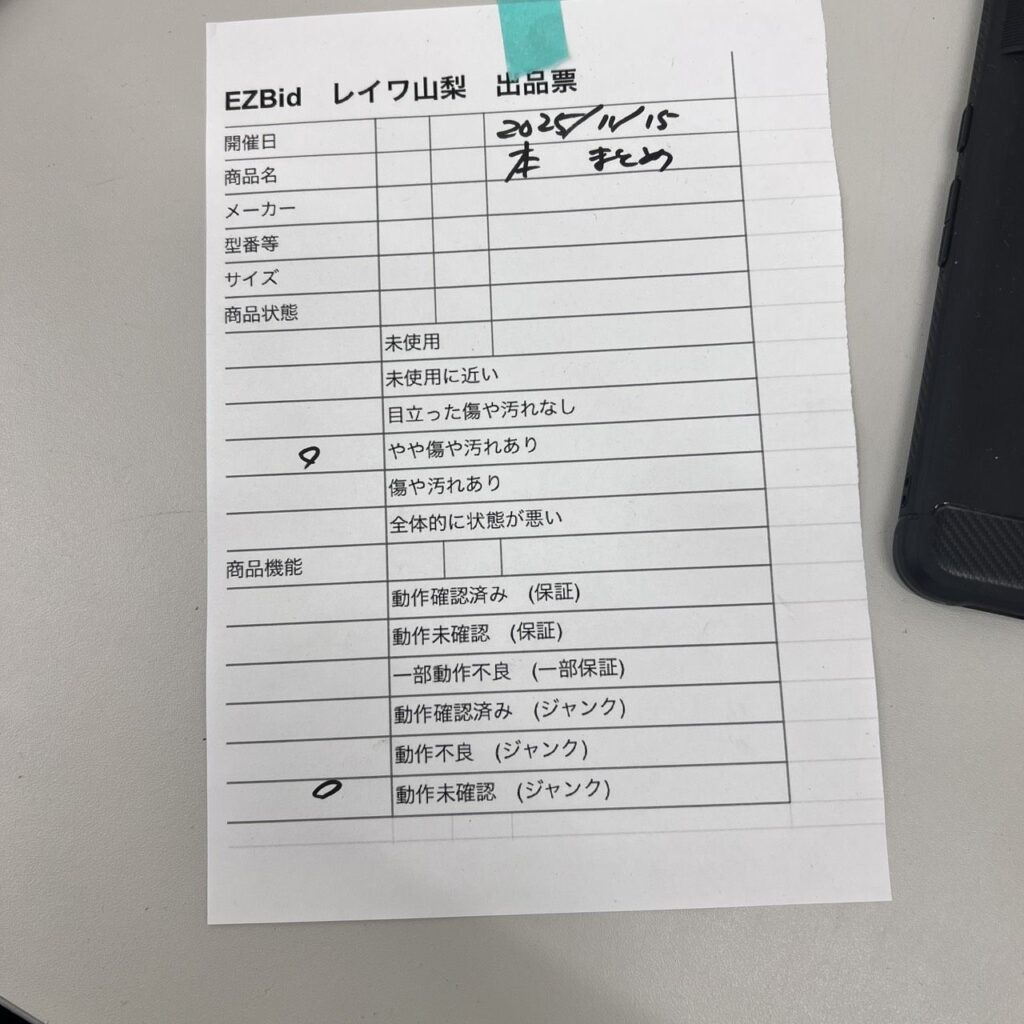 EZBid レイワ山梨 出品票
開催日 2025/11/15
商品名 本 まとめ
メーカー
型番等
サイズ
商品状態
未使用
未使用に近い
目立った傷や汚れなし
○ やや傷や汚れあり
傷や汚れあり
全体的に状態が悪い
商品機能
動作確認済み (保証)
動作未確認 (保証)
一部動作不良 (一部保証)
動作確認済み (ジャンク)
動作不良 (ジャンク)
○ 動作未確認 (ジャンク)